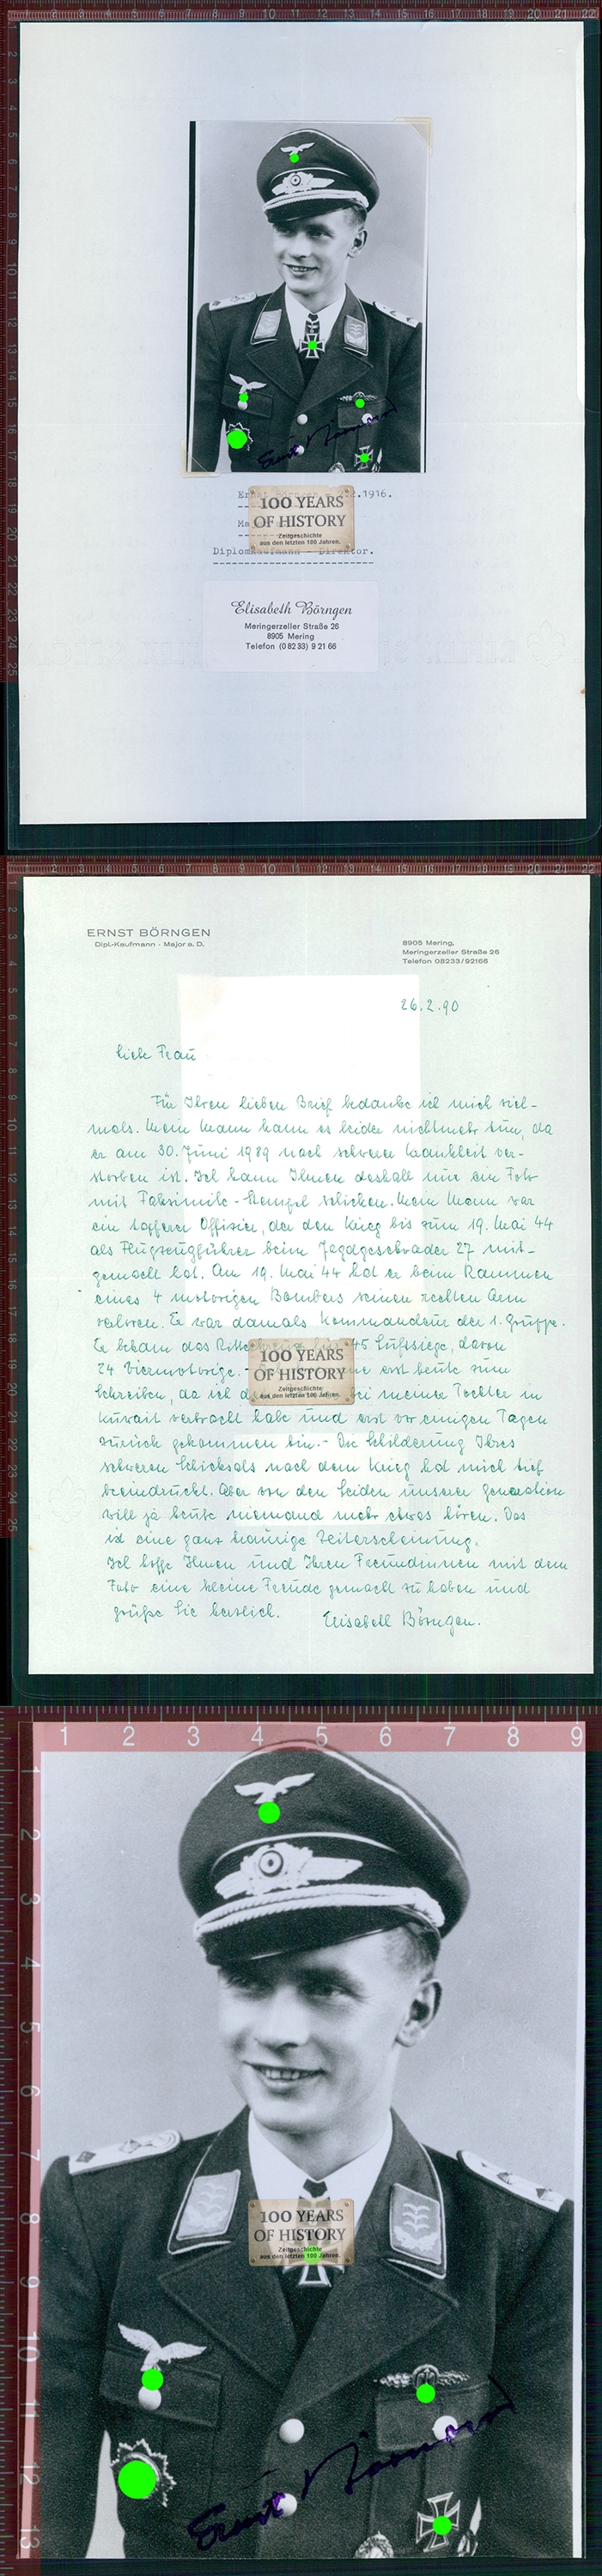 Ernst Börngen
2.1916.
100 YEARS
OF HISTORY
Zeitgeschichte
aus den letzten 100 Jahren.
Diplomkaufmann - Direktor.
Elisabeth Börngen
Meringerzeller Straße 26
8905 Mering
Telefon (0 82 33) 9 21 66
ERNST BÖRNGEN
Dipl.-Kaufmann - Major a. D.
8905 Mering,
Meringerzeller Straße 26
Telefon 08233/92166
26.2.90
Liebe Frau
Für Ihren lieben Brief bedanke ich mich viel-
mals. Mein Mann kann es leider nichtmehr tun, da
er am 30. Juni 1989 nach schwerer Krankheit ver-
storben ist. Ich kann Ihnen deshalb nur ein Foto
mit Faksimile-Stempel schicken. Mein Mann war
ein tapferer Offizier, der den Krieg bis zum 19. Mai 44
als Flugzeugführer beim Jagdgeschwader 27 mit-
gemacht hat. Am 19. Mai 44 hat er beim Rammen
eines 4 motorigen Bombers seinen rechten Arm
verloren. Er war damals Kommandeur der 1. Gruppe.
Er bekam das 45 Luftsiege, davon
24 Viermotorige. - erst heute zum
100 YEARS
OF HISTORY
Zeitgeschichte
aus den letzten 100 Jahren.
Schreiben, da ich bei meiner Tochter in
Kuwait verbracht habe und erst vor einigen Tagen
zurück gekommen bin. - Die Schilderung Ihres
schweren Schicksals nach dem Krieg hat mich tief
beeindruckt. Aber von den Leiden unserer Generation
will ja heute niemand mehr etwas hören. Das
ist eine ganz traurige Zeiterscheinung.
Ich hoffe Ihnen und Ihren Freundinnen mit dem
Foto eine kleine Freude gemacht zu haben und
grüße Sie herzlich. Elisabeth Börngen.
1 2 3 4 5 6 7 8 9
100 YEARS
OF HISTORY
Zeitgeschichte
aus den letzten 100 Jahren.
Ernst Börngen